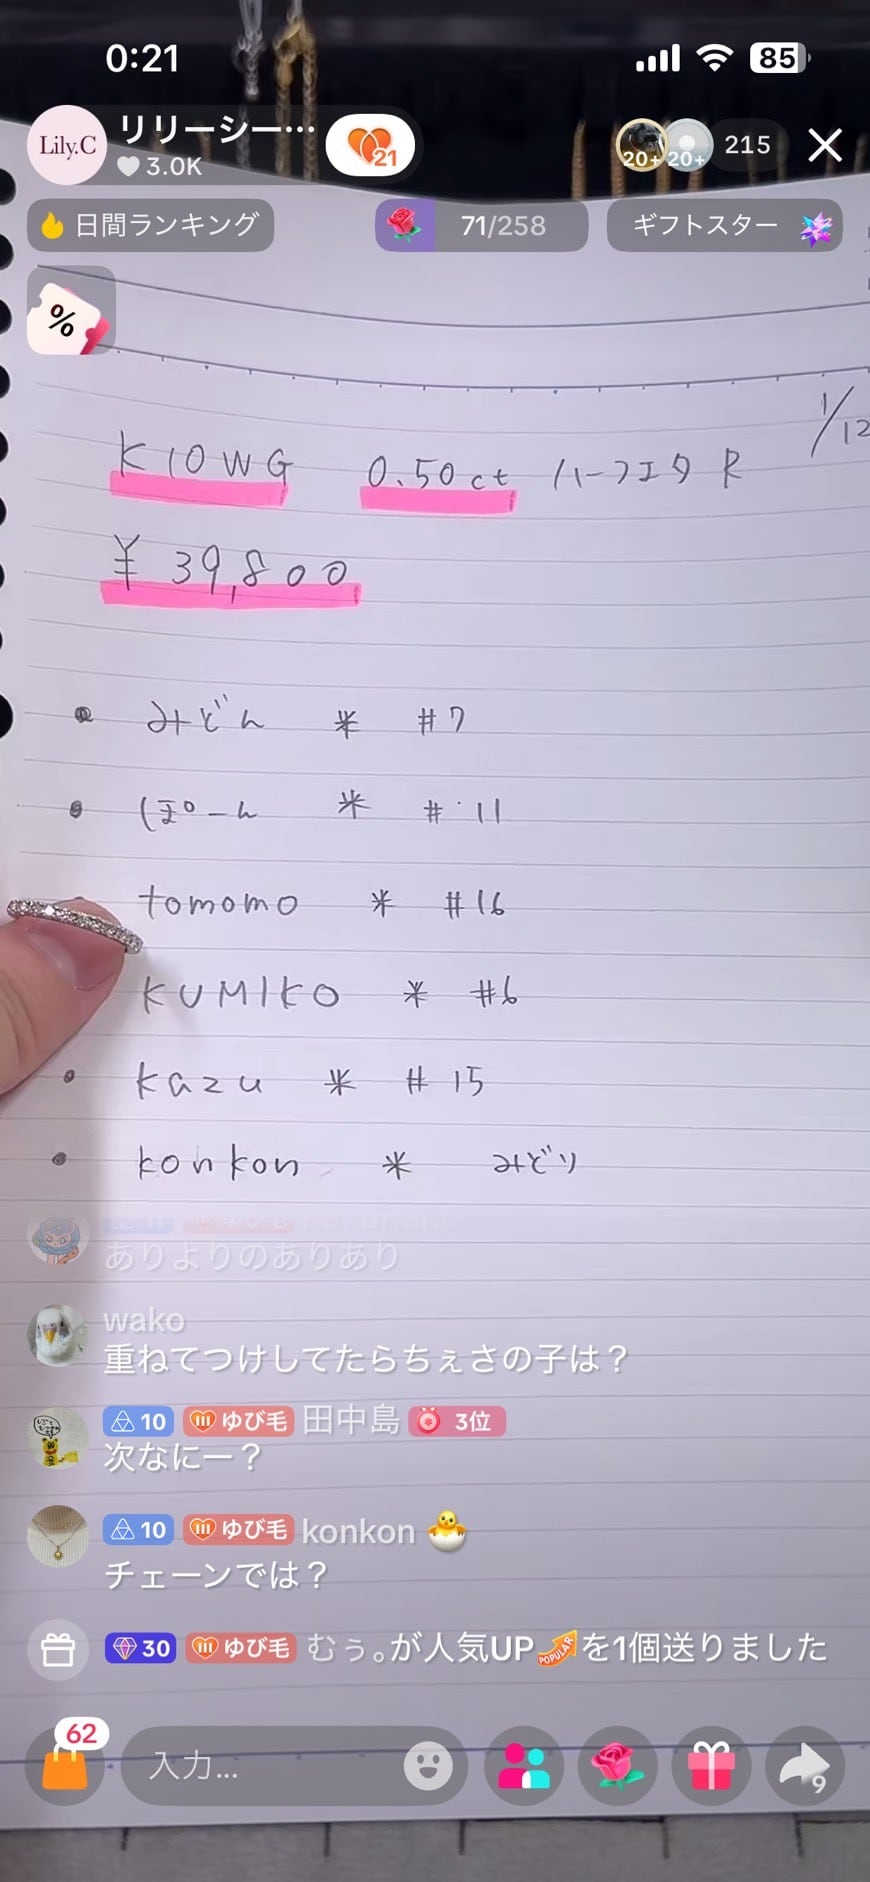 0:21
85
Lily.C
リリーシー…
3.0K
21
20+
20+
215
日間ランキング
71/258
ギフトスター
%
1/12
K10WG 0.50ct ハーフエタ R
¥39,800
みどん * #7
ぽーん * #11
tomomo * #16
KUMIKO * #6
kazu * #15
konkon * みどり
ゆび毛
ありよりのありあり
wako
重ねてつけしてたらちぇさの子は？
10 ゆび毛 田中島 3位
次なにー？
10 ゆび毛 konkon
チェーンでは？
30 ゆび毛 むぅ。が人気UP POPULAR を1個送りました
62
入力...
9